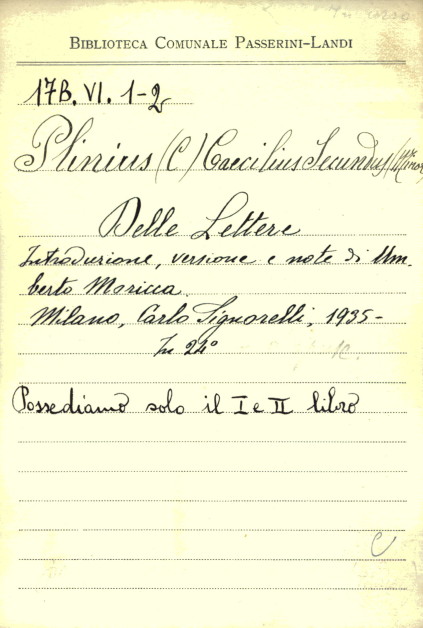 In corso
BIBLIOTECA COMUNALE PASSERINI-LANDI
17B. VI. 1-2
Plinius (C) Caecilius Secundus (Minor)
Delle Lettere
Introduzione, versione e note di Um-
berto Moricca.
Milano, Carlo Signorelli, 1935-
In 24°
Possediamo solo il I e II libro
C